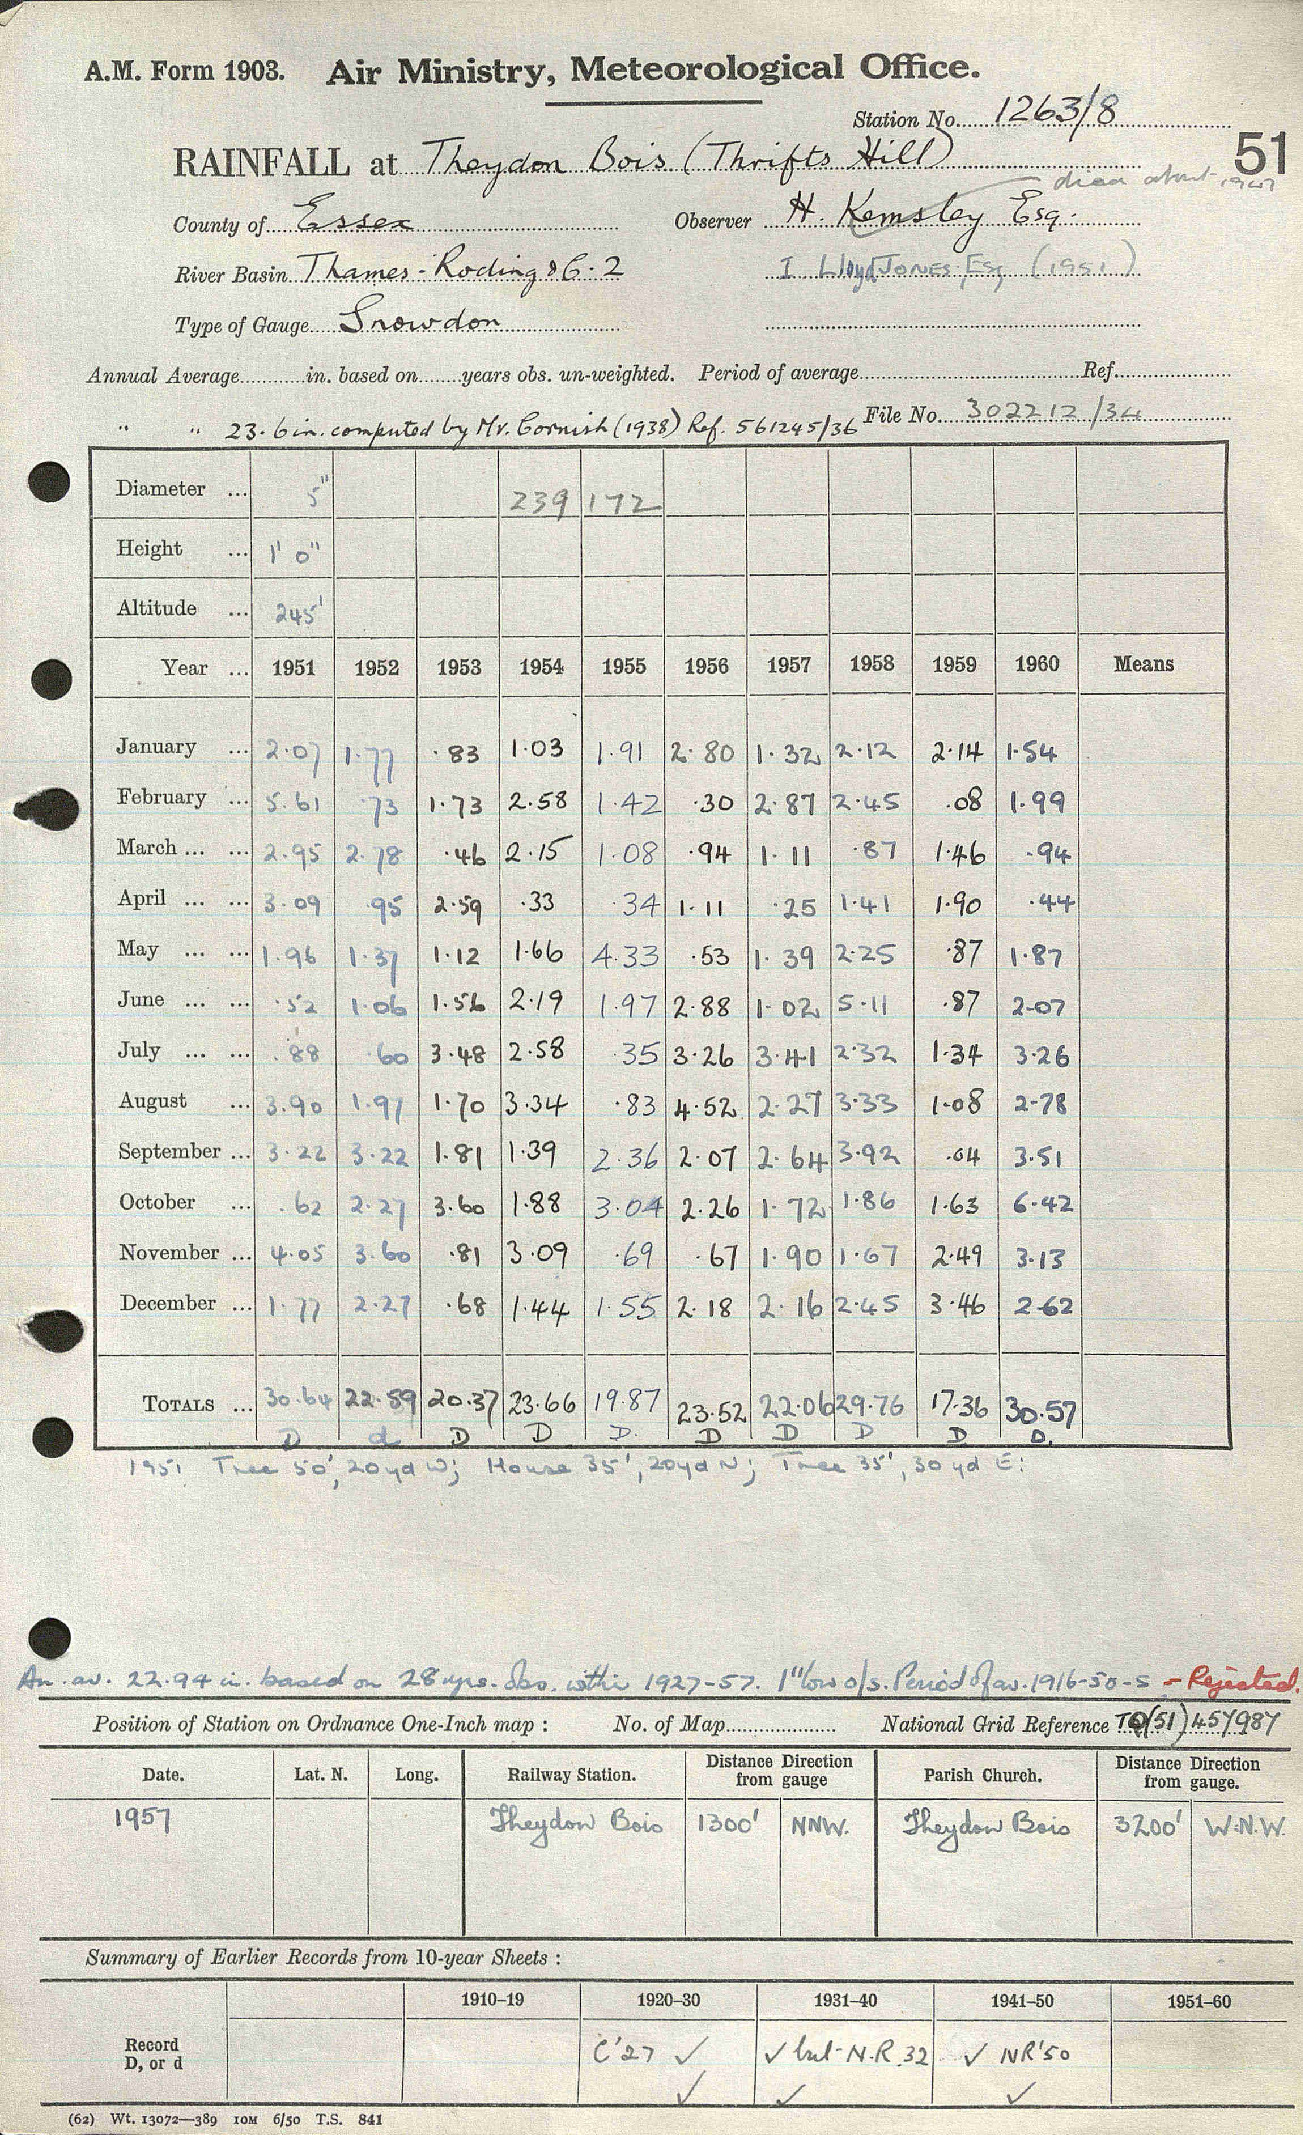 A.M. Form 1903. Air Ministry, Meteorological Office.
Station No. 1263/8
51
RAINFALL at Theydon Bois (Thrifts Hill)
died about 1947
County of Essex Observer H. Kemsley Esq.
River Basin Thames - Roding 86.2 I Lloyd JONES, Esq (1951)
Type of Gauge Snowdon
Annual Average in. based on years obs. un-weighted. Period of average Ref.
" " 23.6 in. computed by Mr. Cornish (1938) Ref. 561245/36 File No. 302212/34
Diameter ... 5" 239 172
Height ... 1' 0"
Altitude ... 245'
Year ... 1951 1952 1953 1954 1955 1956 1957 1958 1959 1960 Means
January ... 2.07 1.77 .83 1.03 1.91 2.80 1.32 2.12 2.14 1.54
February ... 5.61 .73 1.73 2.58 1.42 .30 2.87 2.45 .08 1.99
March ... ... 2.95 2.78 .46 2.15 1.08 .94 1.11 .87 1.46 .94
April ... ... 3.09 .95 2.59 .33 .34 1.11 .25 1.41 1.90 .44
May ... ... 1.96 1.37 1.12 1.66 4.33 .53 1.39 2.25 .87 1.87
June ... ... .52 1.06 1.56 2.19 1.97 2.88 1.02 5.11 .87 2.07
July ... ... .88 .60 3.48 2.58 .35 3.26 3.41 2.32 1.34 3.26
August ... 3.90 1.97 1.70 3.34 .83 4.52 2.27 3.33 1.08 2.78
September ... 3.22 3.22 1.81 1.39 2.36 2.07 2.64 3.92 .04 3.51
October ... .62 2.27 3.60 1.88 3.04 2.26 1.72 1.86 1.63 6.42
November ... 4.05 3.60 .81 3.09 .69 .67 1.90 1.67 2.49 3.13
December ... 1.77 2.27 .68 1.44 1.55 2.18 2.16 2.45 3.46 2.62
TOTALS ... 30.64 22.59 20.37 23.66 19.87 23.52 22.06 29.76 17.36 30.57
D d D D D. D D D D D.
1951 Tree 50', 20yd W; House 35', 20yd N; Tree 35', 30yd E:
An. av. 22.94 in. based on 28 yrs. obs. within 1927-57. 1" low o/s. Period of av. 1916-50-S - Rejected.
Position of Station on Ordnance One-Inch map : No. of Map National Grid Reference TQ(51)457987
Date. Lat. N. Long. Railway Station. Distance from Direction gauge Parish Church. Distance from Direction gauge.
1957 Theydon Bois 1300' NNW. Theydon Bois 3200' W.N.W.
Summary of Earlier Records from 10-year Sheets :
1910–19 1920–30 1931–40 1941–50 1951–60
Record D, or d C'27 ✓ ✓ but N.R. 32 ✓ NR'50
✓ ✓ ✓
(62) Wt. 13072—389 10M 6/50 T.S. 841